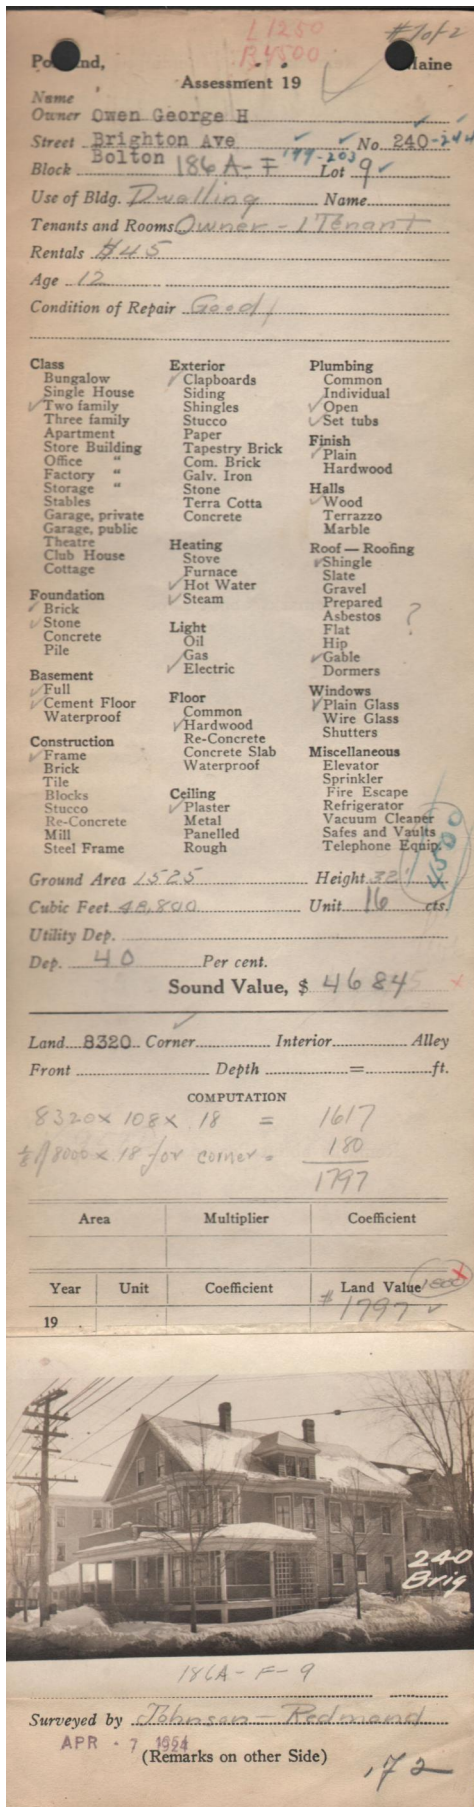 L1250
B4500
#1 of 2
Po nd, Maine
Assessment 19
Name
Owner Owen George H
Street Brighton Ave No. 240-244
Bolton 199-203
Block 186A-F Lot 9
Use of Bldg. Dwelling Name
Tenants and Rooms Owner - 1 Tenant
Rentals $45
Age 12
Condition of Repair Good
Class
Bungalow
Single House
Two family
Three family
Apartment
Store Building
Office "
Factory "
Storage "
Stables
Garage, private
Garage, public
Theatre
Club House
Cottage
Foundation
Brick
Stone
Concrete
Pile
Basement
Full
Cement Floor
Waterproof
Construction
Frame
Brick
Tile
Blocks
Stucco
Re-Concrete
Mill
Steel Frame
Exterior
Clapboards
Siding
Shingles
Stucco
Paper
Tapestry Brick
Com. Brick
Galv. Iron
Stone
Terra Cotta
Concrete
Heating
Stove
Furnace
Hot Water
Steam
Light
Oil
Gas
Electric
Floor
Common
Hardwood
Re-Concrete
Concrete Slab
Waterproof
Ceiling
Plaster
Metal
Panelled
Rough
Plumbing
Common
Individual
Open
Set tubs
Finish
Plain
Hardwood
Halls
Wood
Terrazzo
Marble
Roof — Roofing
Shingle
Slate
Gravel
Prepared
Asbestos
Flat ?
Hip
Gable
Dormers
Windows
Plain Glass
Wire Glass
Shutters
Miscellaneous
Elevator
Sprinkler
Fire Escape
Refrigerator
Vacuum Cleaner
Safes and Vaults
Telephone Equip.
Ground Area 1525 Height 32'
Cubic Feet 48,800 Unit 16 cts.
Utility Dep.
Dep. 40 Per cent.
Sound Value, $ 4684 x
Land 8320 Corner Interior Alley
Front Depth = ft.
COMPUTATION
8320 x 108 x .18 = 1617
8000 x .18 for corner = 180
1797
Area Multiplier Coefficient
Year Unit Coefficient Land Value 1800 x
19 $1797
240
Brig
186A-F-9
Surveyed by Johnson - Redmond
APR - 7 1924
(Remarks on other Side)
172